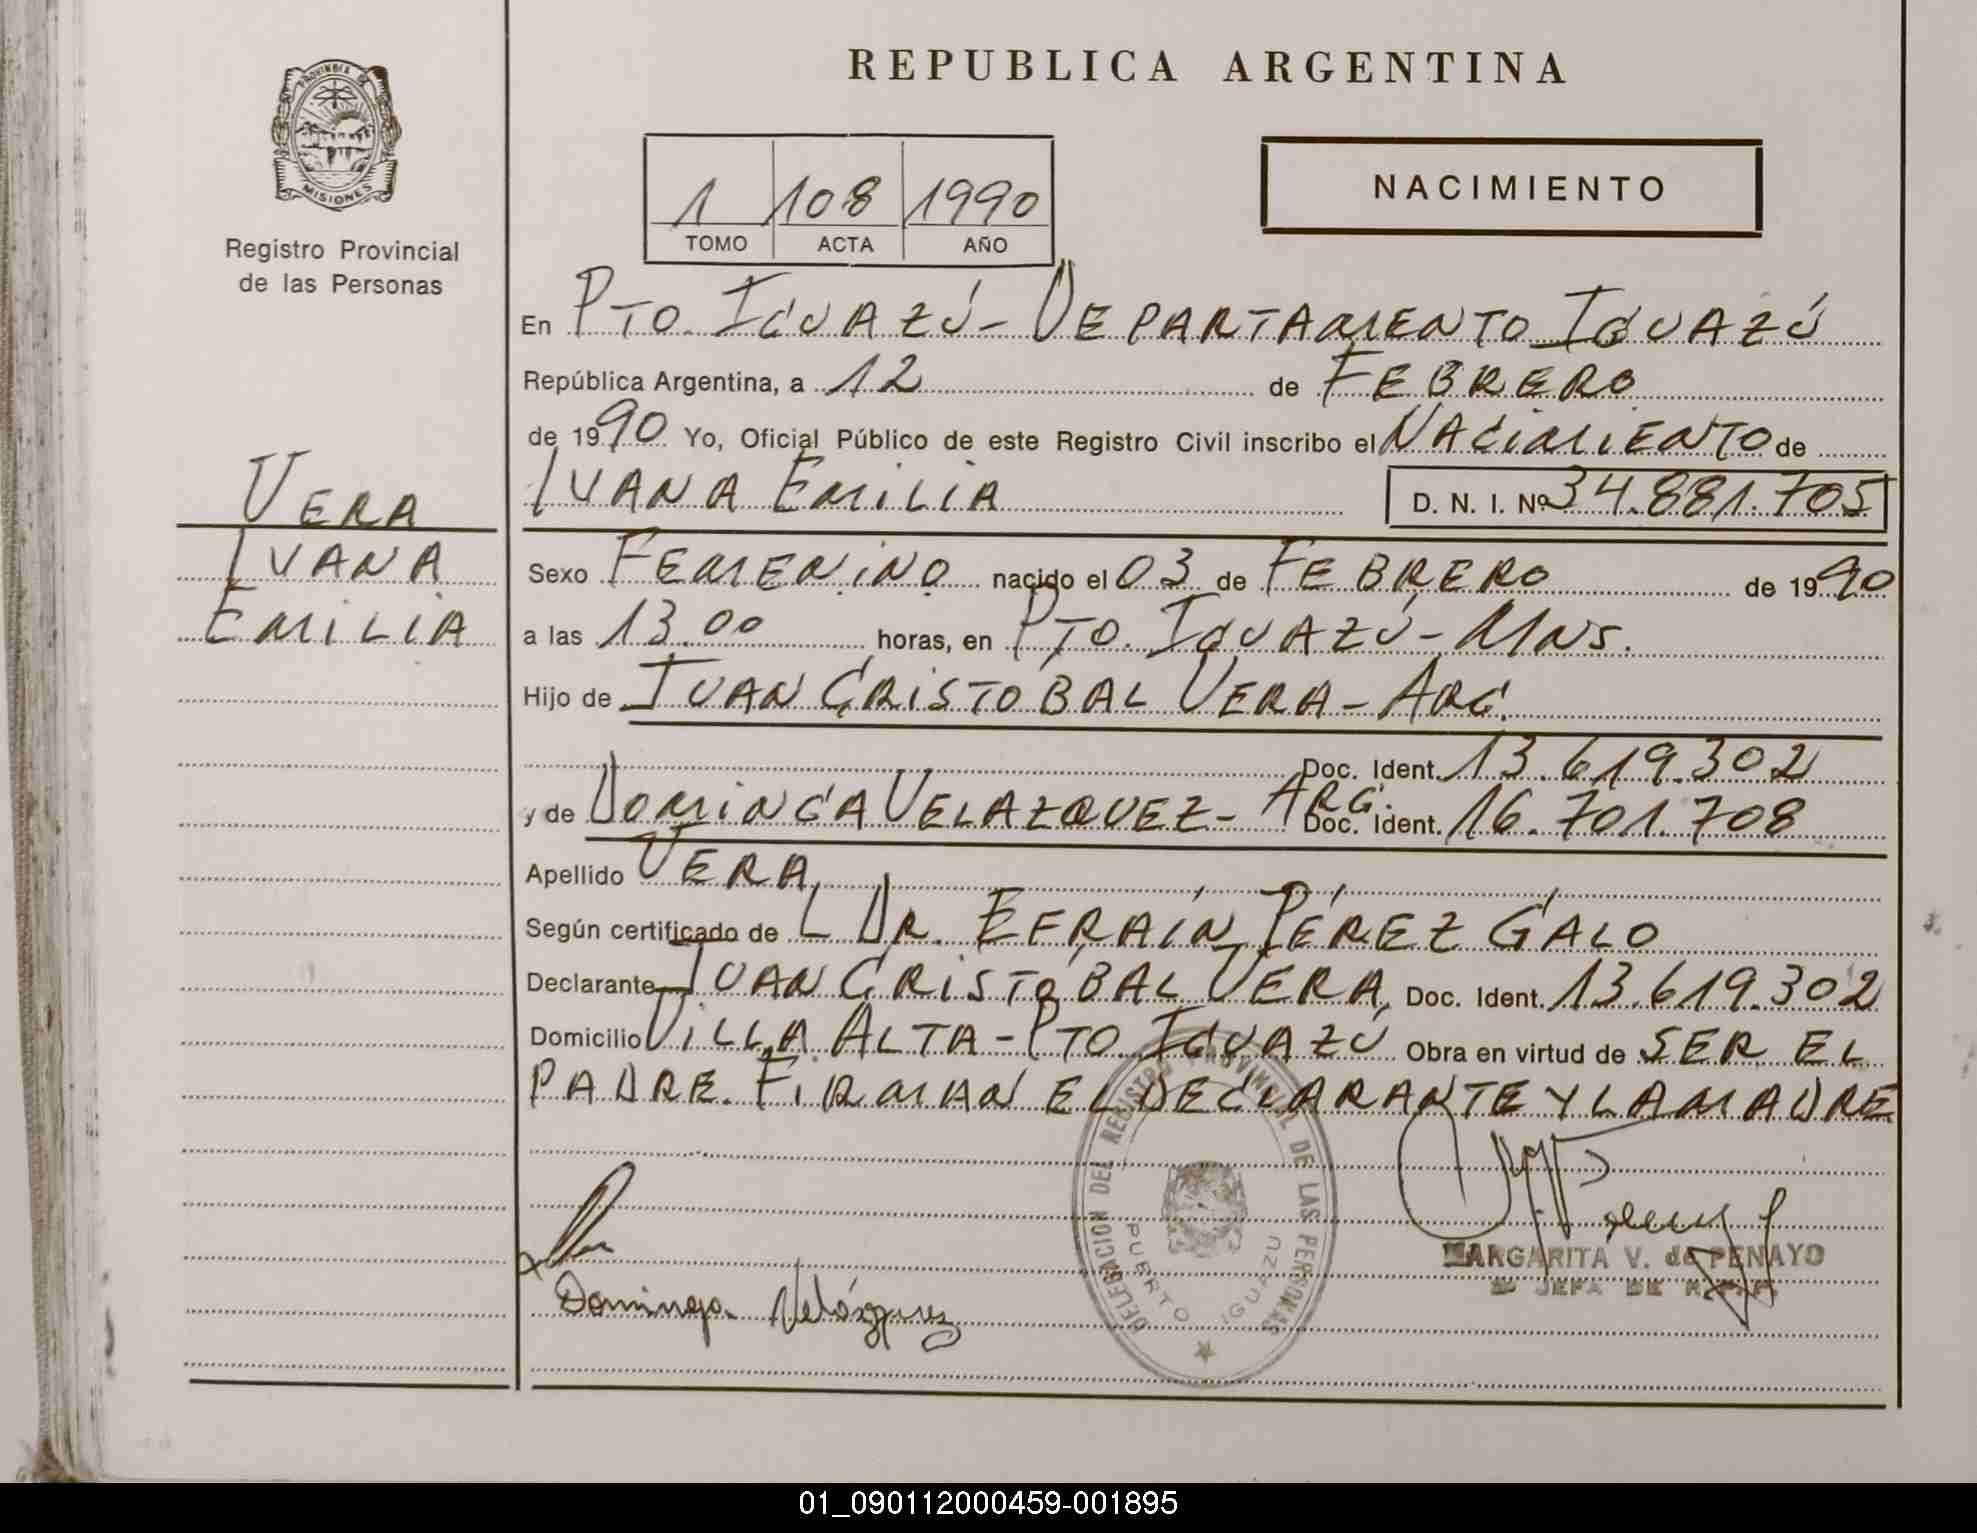 REPUBLICA ARGENTINA
PROVINCIA DE
MISIONES
Registro Provincial
de las Personas
1 108 1990
TOMO ACTA AÑO
NACIMIENTO
En PTO. IGUAZÚ - DEPARTAMENTO IGUAZÚ
República Argentina, a 12 de FEBRERO
de 1990 Yo, Oficial Público de este Registro Civil inscribo el NACIMIENTO de
IVANA EMILIA D. N. I. Nº 34.881.705
VERA
IVANA
EMILIA
Sexo FEMENINO nacido el 03 de FEBRERO de 1990
a las 13.00 horas, en PTO. IGUAZÚ - MNS.
Hijo de JUAN CRISTOBAL VERA - ARG.
Doc. Ident. 13.619.302
y de DOMINGA VELAZQUEZ - ARG. Doc. Ident. 16.701.708
Apellido VERA
Según certificado de L DR. EFRAÍN PÉREZ GALO
Declarante JUAN CRISTOBAL VERA, Doc. Ident. 13.619.302
Domicilio VILLA ALTA - PTO IGUAZÚ Obra en virtud de SER EL
PADRE. FIRMAN EL DECLARANTE Y LA MADRE
DELEGACION DEL REGISTRO PROVINCIAL DE LAS PERSONAS
PUERTO IGUAZU
MARGARITA V. de PENAYO
JEFA DE R.P.P.
Dominga Velázquez
01_090112000459-001895